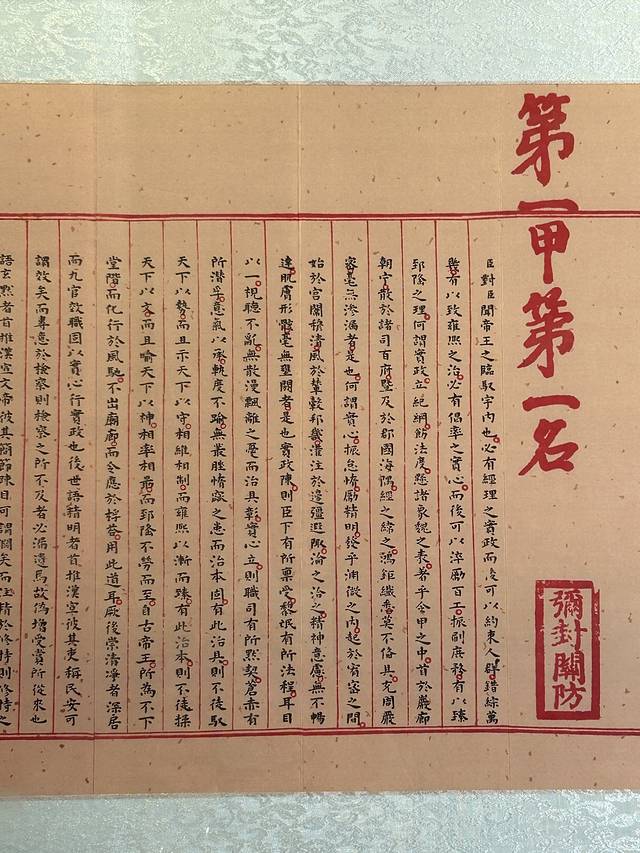 第一甲第一名
彌封關防
臣對臣聞帝王之臨馭宇內也必有經理之實政而後可以約束人群錯綜萬
幾有以致雍熙之治必有倡率之實心而後可以淬勵百工振刷庶務有以臻
郅隆之理何謂實政立紀綱飭法度懸諸象魏之表著乎令甲之中首於巖廊
朝宁散於諸司百府暨及於郡國海隅經之緯之鴻鉅纖悉莫不備具充周嚴
密毫無滲漏者是也何謂實心振怠惰勵精明發乎淵微之內起於宥密之間
始於宮闈穆清風於輦轂邦畿灌注於邊疆遐陬淪之洽之精神意慮無不暢
達肌膚形骸毫無壅閼者是也實政陳則臣下有所稟受黎氓有所法程耳目
以一視聽不亂無散漫飄離之憂而治具彰實心立則職司有所默契蒼赤有
所潛孚意氣以承軌度不踰無叢脞惰窳之患而治本固有此治具則不徒馭
天下以勢而且示天下以守相維相制而雍熙以漸而臻有此治本則不徒操
天下以文而且喻天下以神相率相勗而郅隆不勞而至自古帝王所為不下
堂階而化行於風馳不出廟廊而令應於桴答用此道耳厥後崇清凈者深居
而九官效職固以實心行實政也後世語精明者首推漢宣彼其吏稱民安可
謂效矣而專意於檢察則檢察之所不及者必漏遺焉故偽增受賞所從來也
語玄默者首推漢文帝彼其簡節疎目可謂闊矣而注精於修持則修持之